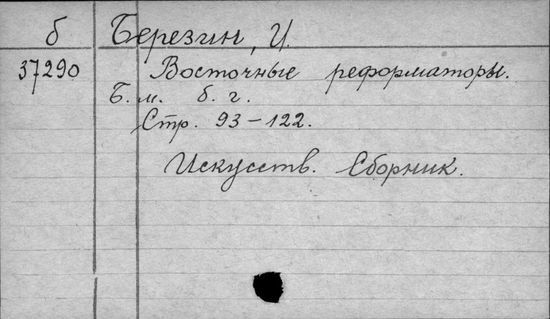 б Березин, И.
37290 Восточные реформаторы.
Б. м. б. г.
Стр. 93-122.
Искусств. Сборник.